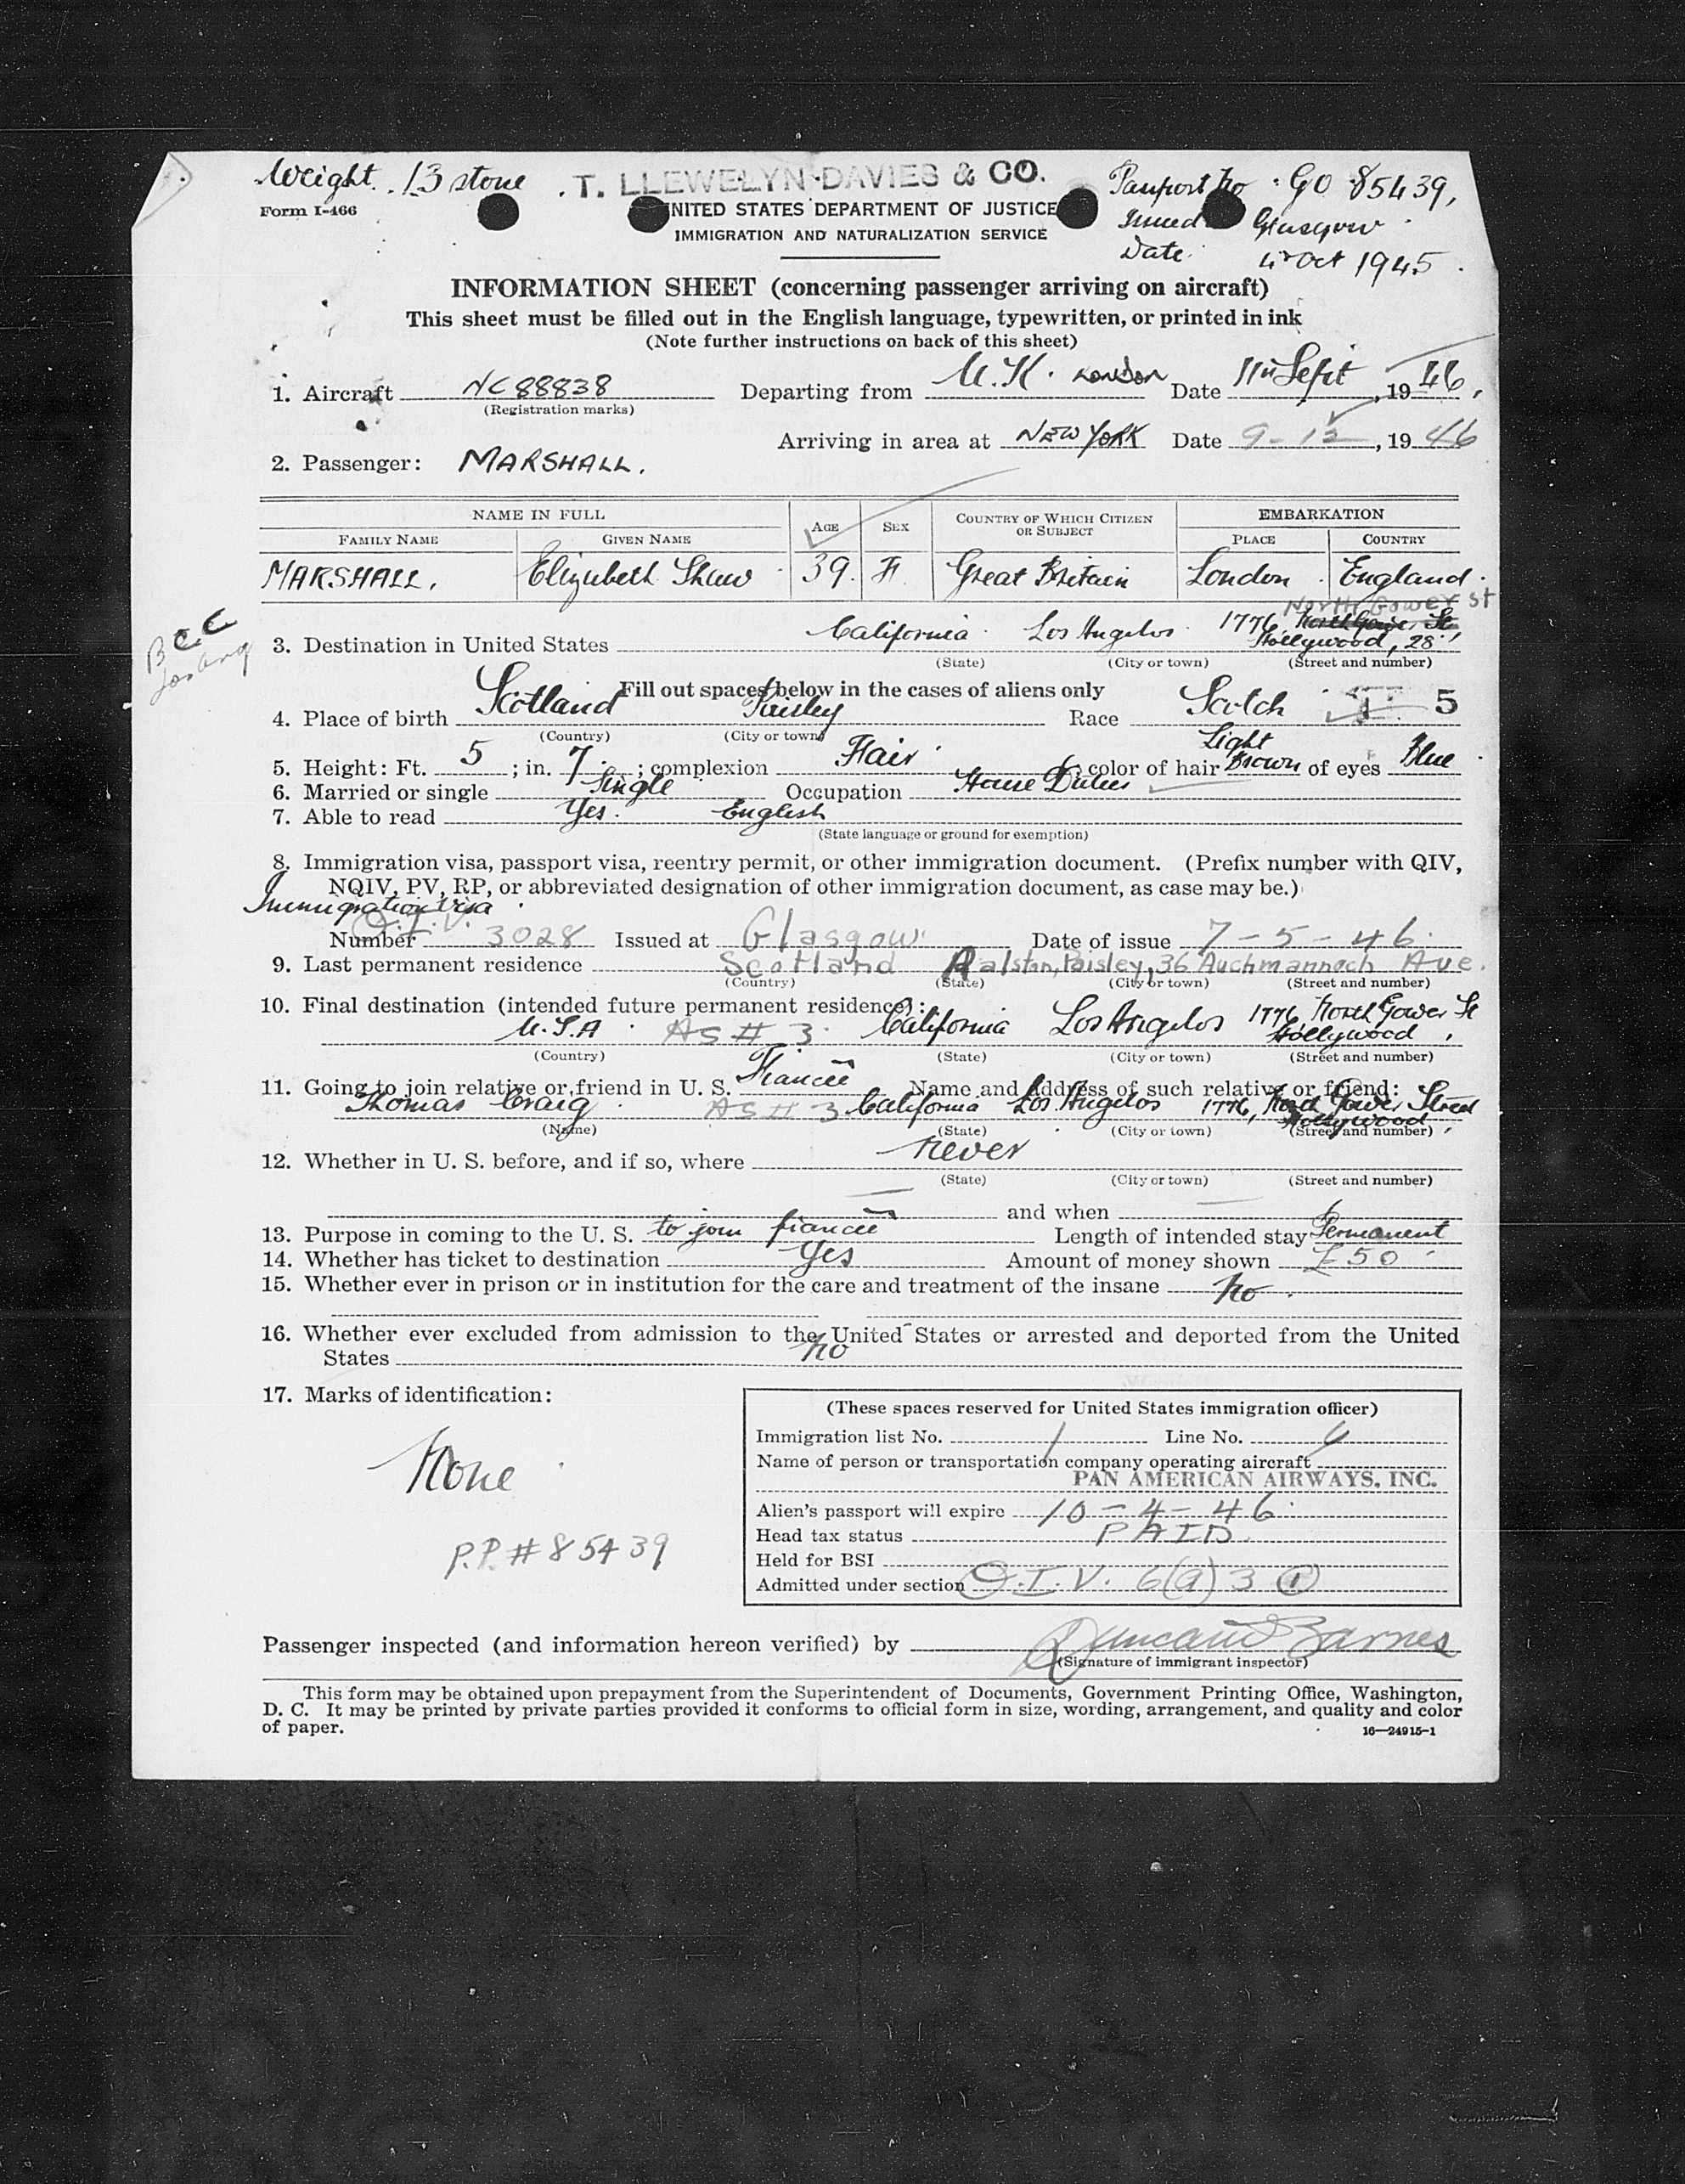 Weight. 13 stone
T. LLEWELYN-DAVIES & CO.
Passport No GO 85439,
Form I-466
UNITED STATES DEPARTMENT OF JUSTICE
Issued Glasgow
IMMIGRATION AND NATURALIZATION SERVICE
Date 4th Oct 1945.
INFORMATION SHEET (concerning passenger arriving on aircraft)
This sheet must be filled out in the English language, typewritten, or printed in ink
(Note further instructions on back of this sheet)
1. Aircraft NC88838 Departing from U.K. London Date 11th Sept, 1946.
(Registration marks)
Arriving in area at NEW YORK Date 9-12, 1946
2. Passenger: MARSHALL.
NAME IN FULL AGE SEX COUNTRY OF WHICH CITIZEN OR SUBJECT EMBARKATION
FAMILY NAME GIVEN NAME PLACE COUNTRY
MARSHALL. Elizabeth Shaw 39. F. Great Britain London England.
North Gower St
3. Destination in United States California Los Angelos 1776 North Gower St
Hollywood, 28
(State) (City or town) (Street and number)
B C C
Los Ang
Fill out spaces below in the cases of aliens only
4. Place of birth Scotland Paisley Race Scotch 5
(Country) (City or town)
5. Height: Ft. 5; in. 7; complexion Fair; color of hair Light Brown of eyes Blue
6. Married or single Single Occupation House Duties
7. Able to read Yes. English
(State language or ground for exemption)
8. Immigration visa, passport visa, reentry permit, or other immigration document. (Prefix number with QIV,
NQIV, PV, RP, or abbreviated designation of other immigration document, as case may be.)
Immigration Visa
Q.I.V.
Number 3028 Issued at Glasgow Date of issue 7-5-46.
9. Last permanent residence Scotland Ralston, Paisley, 36 Auchmannoch Ave.
(Country) (State) (City or town) (Street and number)
10. Final destination (intended future permanent residence):
U.S.A. AS # 3 California Los Angelos 1776 North Gower St
Hollywood
(Country) (State) (City or town) (Street and number)
11. Going to join relative or friend in U. S. Fiancee Name and Address of such relative or friend:
Thomas Craig AS # 3 California Los Angelos 1776, North Gower Street
Hollywood
(Name) (State) (City or town) (Street and number)
12. Whether in U. S. before, and if so, where Never
(State) (City or town) (Street and number)
and when
13. Purpose in coming to the U. S. to join fiancee Length of intended stay Permanent
14. Whether has ticket to destination Yes Amount of money shown £50
15. Whether ever in prison or in institution for the care and treatment of the insane No.
16. Whether ever excluded from admission to the United States or arrested and deported from the United
States No
17. Marks of identification:
None
P.P. # 85439
(These spaces reserved for United States immigration officer)
Immigration list No. 1 Line No. 4
Name of person or transportation company operating aircraft
PAN AMERICAN AIRWAYS, INC.
Alien's passport will expire 10-4-46.
Head tax status PAID
Held for BSI
Admitted under section Q.I.V. 6(a)3 1
Passenger inspected (and information hereon verified) by Duncan W Barnes
(Signature of immigrant inspector)
This form may be obtained upon prepayment from the Superintendent of Documents, Government Printing Office, Washington,
D. C. It may be printed by private parties provided it conforms to official form in size, wording, arrangement, and quality and color
of paper.
16—24915-1